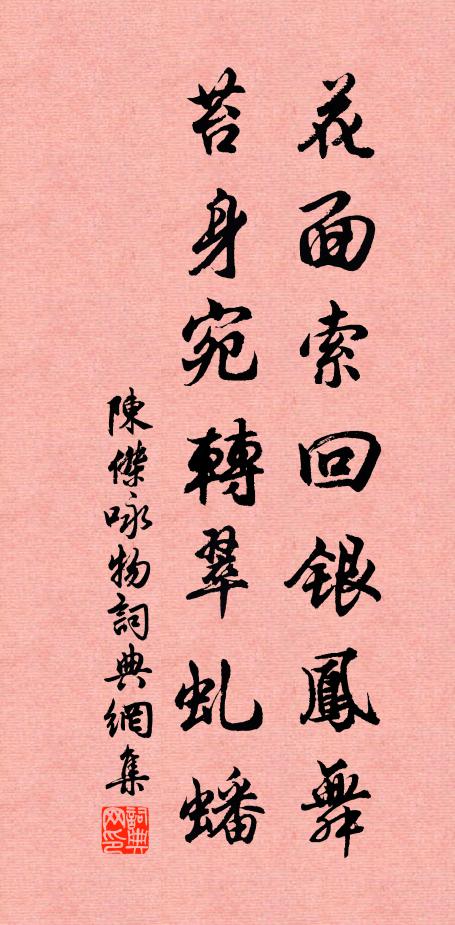 花面索回銀鳳舞
苔身宛轉翠虬蟠
陳傑咏物詞典網集
詞典網印